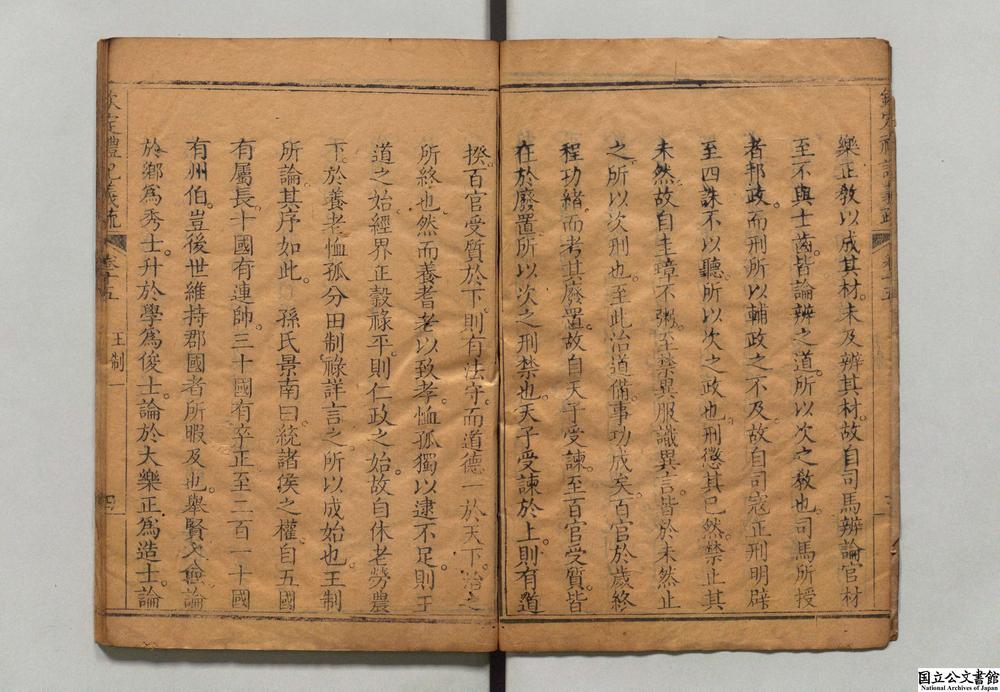 樂正教以成其材未及辨其材故自司馬辨論官材
至不與士齒皆論辨之道所以次之教也司馬所授
者邦政而刑所以輔政之不及故自司寇正刑明辟
至四誅不以聽所以次之政也刑懲其已然禁止其
未然故自圭璋不粥至禁異服識異言皆於未然止
之所以次刑也至此治道備事功成矣百官於歲終
程功緒而考其廢置故自天子受諫至百官受質皆
在於廢置所以次之刑禁也天子受諫於上則有道
揆百官受質於下則有法守而道德一於天下治之
所終也然而養耆老以致孝恤孤獨以逮不足則王
道之始經界正穀祿平則仁政之始故自休老勞農
下於養老恤孤分田制祿詳言之所以成始也王制
所論其序如此 孫氏景南曰統諸侯之權自五國
有屬長十國有連帥三十國有卒正至二百一十國
有州伯豈後世維持郡國者所暇及也舉賢之論
於鄉為秀士升於學為俊士論於大樂正為造士論
欽定禮記義疏
卷十五
王制一
四
国立公文書館
National Archives of Japan